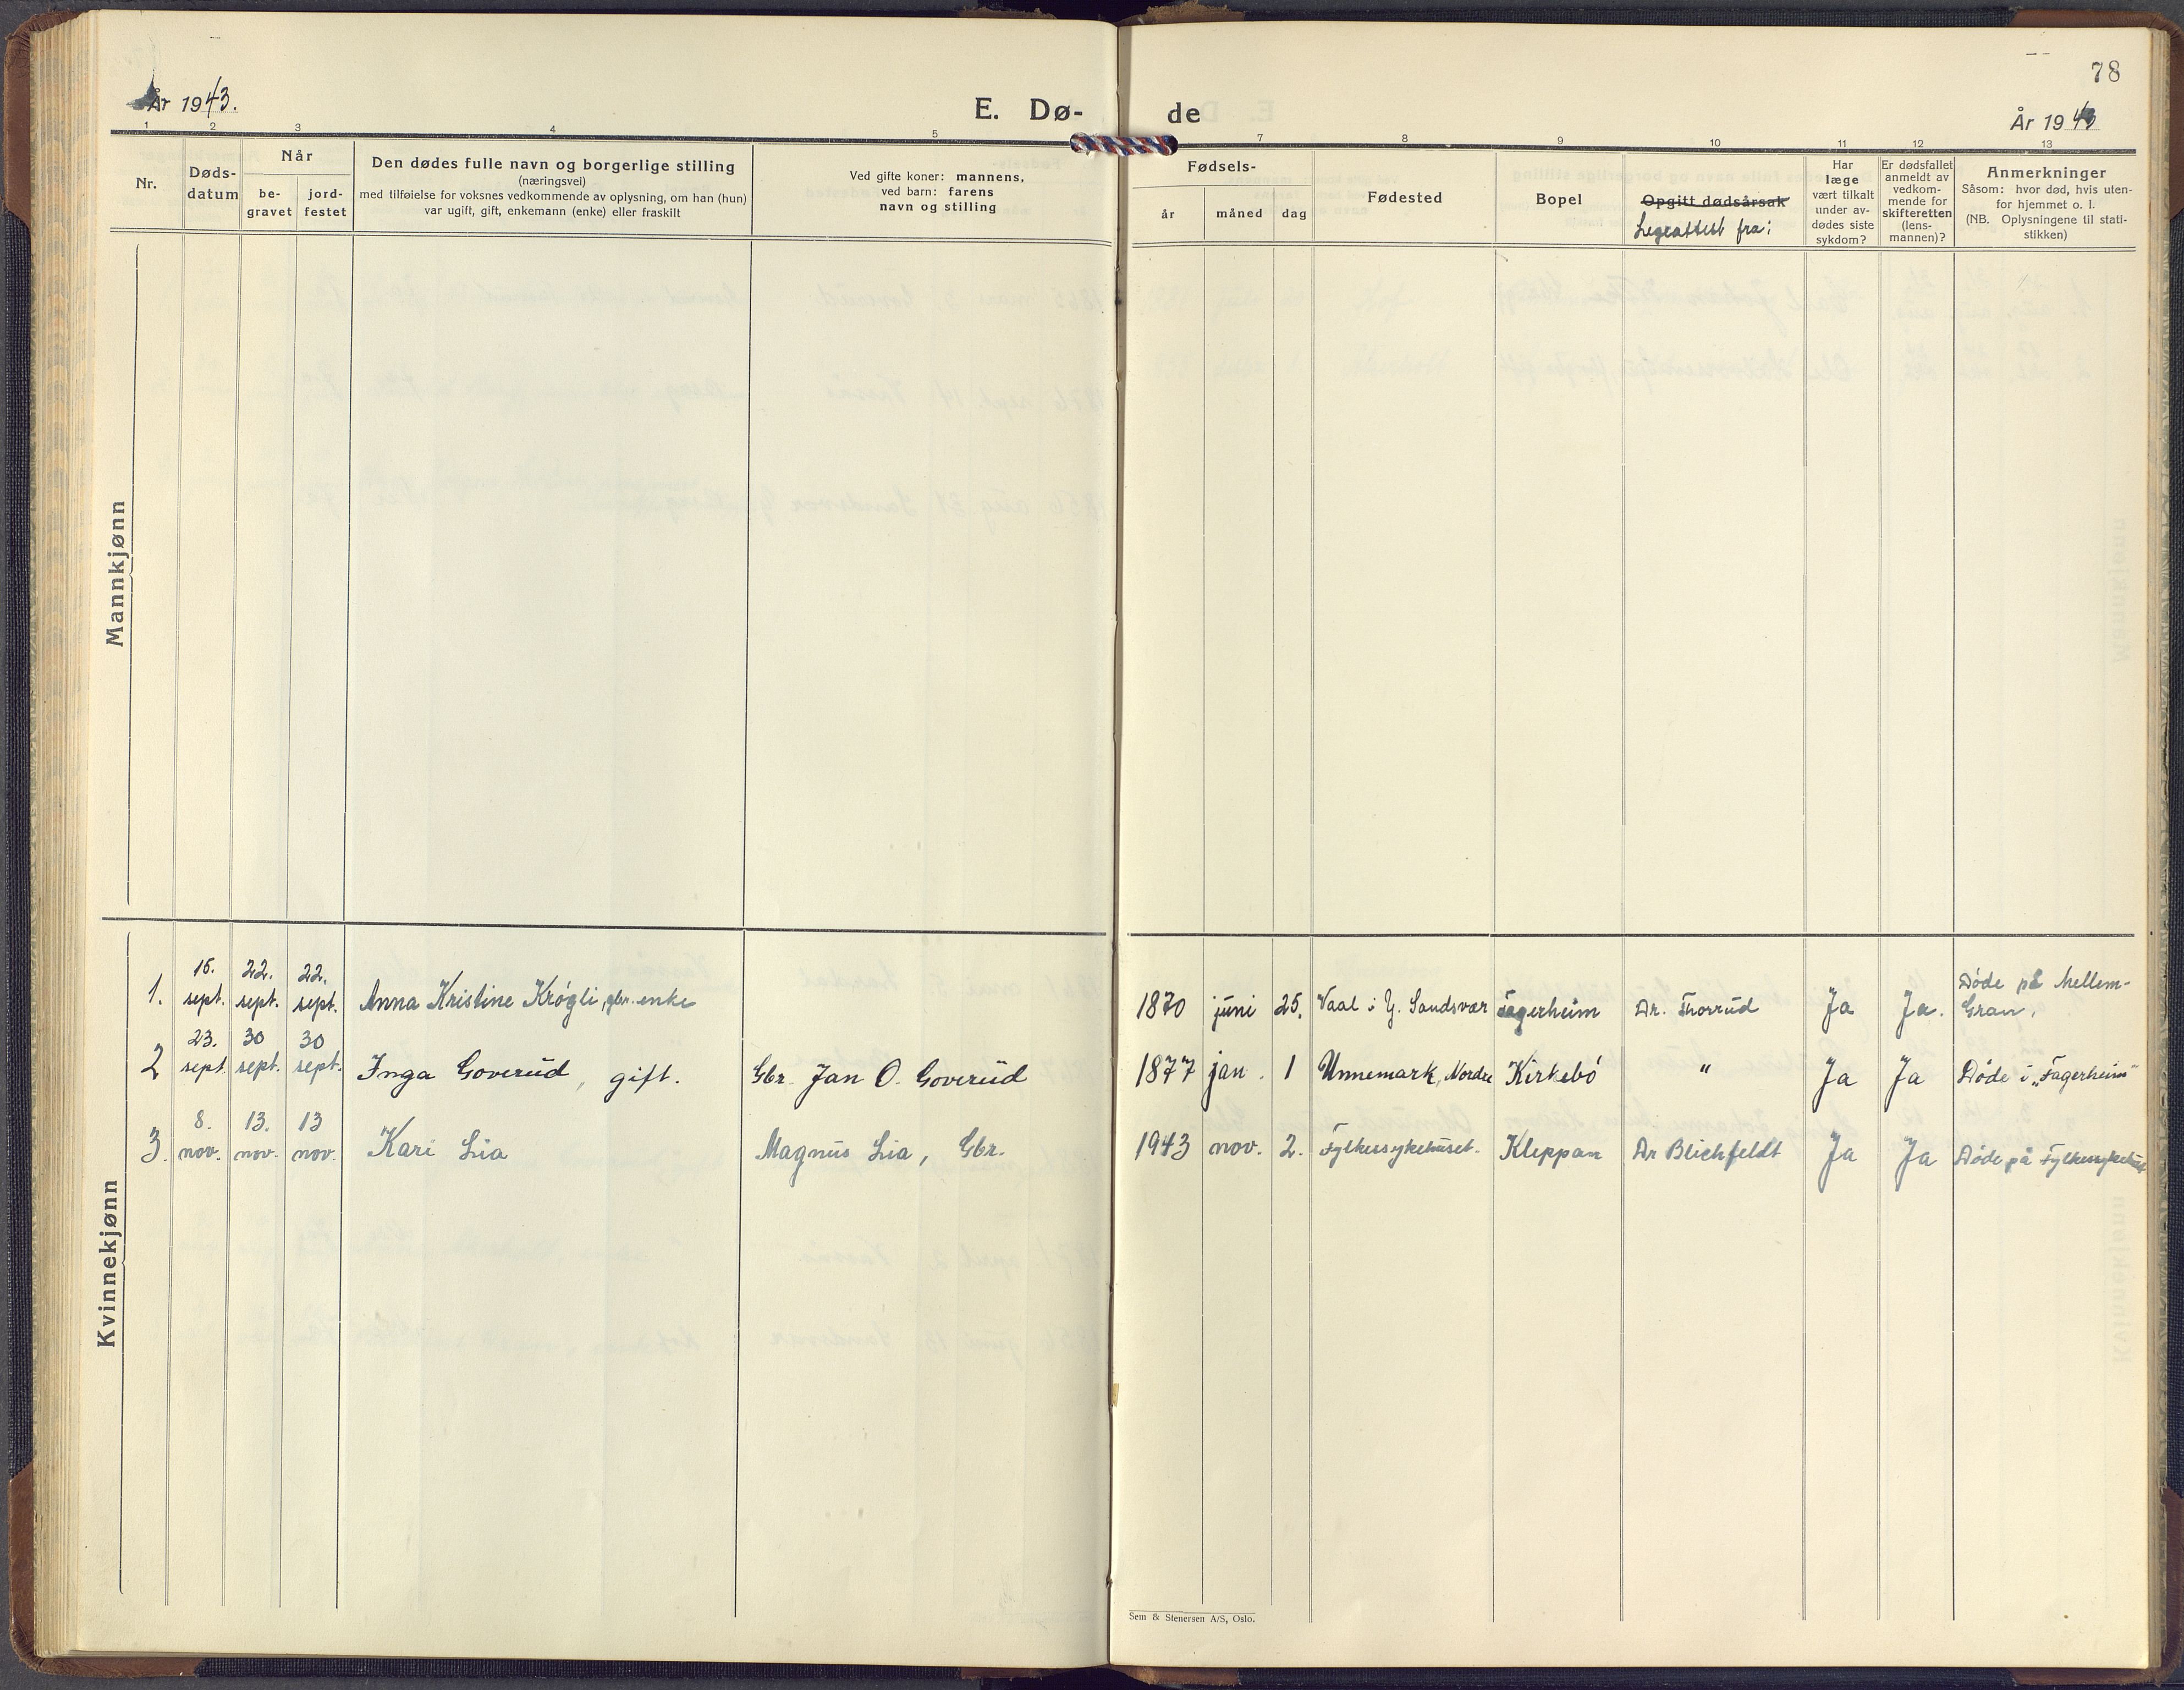 78
År 1943.
E. Dø- de
År 1943
1 2 3 4 5 7 8 9 10 11 12 13
Nr.
Døds-
datum
Når
be-
gravet
jord-
festet
Den dødes fulle navn og borgerlige stilling
(næringsvei)
med tilføielse for voksnes vedkommende av oplysning, om han (hun)
var ugift, gift, enkemann (enke) eller fraskilt
Ved gifte koner: mannens,
ved barn: farens
navn og stilling
Fødsels-
år måned dag
Fødested
Bopel
Opgitt dødsårsak
Legeattest fra:
Har
læge
vært tilkalt
under av-
dødes siste
sykdom?
Er dødsfallet
anmeldt av
vedkom-
mende for
skifteretten
(lens-
mannen)?
Anmerkninger
Såsom: hvor død, hvis uten-
for hjemmet o. l.
(NB. Oplysningene til stati-
stikken)
Mannkjønn
Kvinnekjønn
22. 22. Døde på Mellem-
1. sept. sept. sept. Anna Kristine Krógli, gbr. enke 1870 juni 25. Vaal i Y. Sandsvær Fagerheim Dr. Thorrud Ja Ja. Gran.
23. 30 30
2 sept. sept. sept. Inga Goverud, gift. Gbr. Jan O. Goverud 1877 jan. 1 Unnemark, Nordre Kirkebó " Ja Ja Døde i „Fagerheim"
8. 13. 13
3. nov. nov. nov. Kari Lia Magnus Lia, Gbr. 1943 nov. 2. Fylkessykehuset. Kleppan Dr Blichfeldt Ja Ja Døde på Fylkessykehuset
Sem & Stenersen A/S, Oslo.